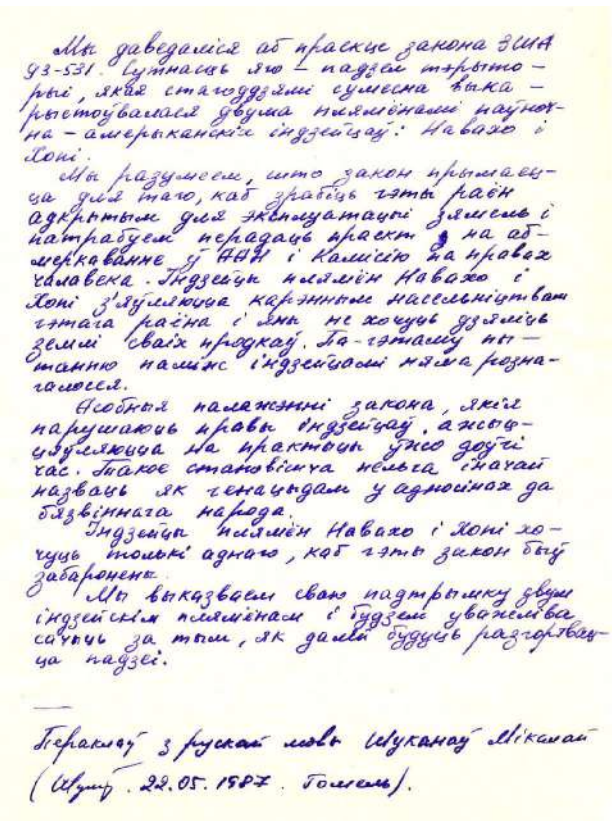 Мы даведаліся аб праекце закона ЗША
93-531. Сутнасць яго – падзел тэрыто-
рыі, якая стагоддзямі сумесна выка-
рыстоўвалася двума плямёнамі паўноч-
на-амерыканскіх індзейцаў: Навахо і
Хопі.
Мы разумеем, што закон прымаец-
ца для таго, каб зрабіць гэты раён
адкрытым для эксплуатацыі зямель і
патрабуем перадаць праект на аб-
меркаванне ў ААН і Камісію па правах
чалавека. Індзейцы плямён Навахо і
Хопі з'яўляюцца карэнным насельніцтвам
гэтага раёна і яны не хочуць дзяліць
землі сваіх продкаў. Па-гэтаму пы-
танню паміж індзейцамі няма розна-
галосся.
Асобныя палажэнні закона, якія
парушаюць правы індзейцаў, ажыц-
цяўляюцца на практыцы ўжо доўгі
час. Такое становішча нельга іначай
назваць як генацыдам у адносінах да
бязвіннага народа.
Індзейцы плямён Навахо і Хопі хо-
чуць толькі аднаго, каб гэты закон быў
забаронены.
Мы выказваем сваю падтрымку двум
індзейскім плямёнам і будзем уважліва
сачыць за тым, як далей будуць разгортвац-
ца падзеі.
Пераклаў з рускай мовы Шуканаў Мікалай
( 22.05.1987. Гомель).